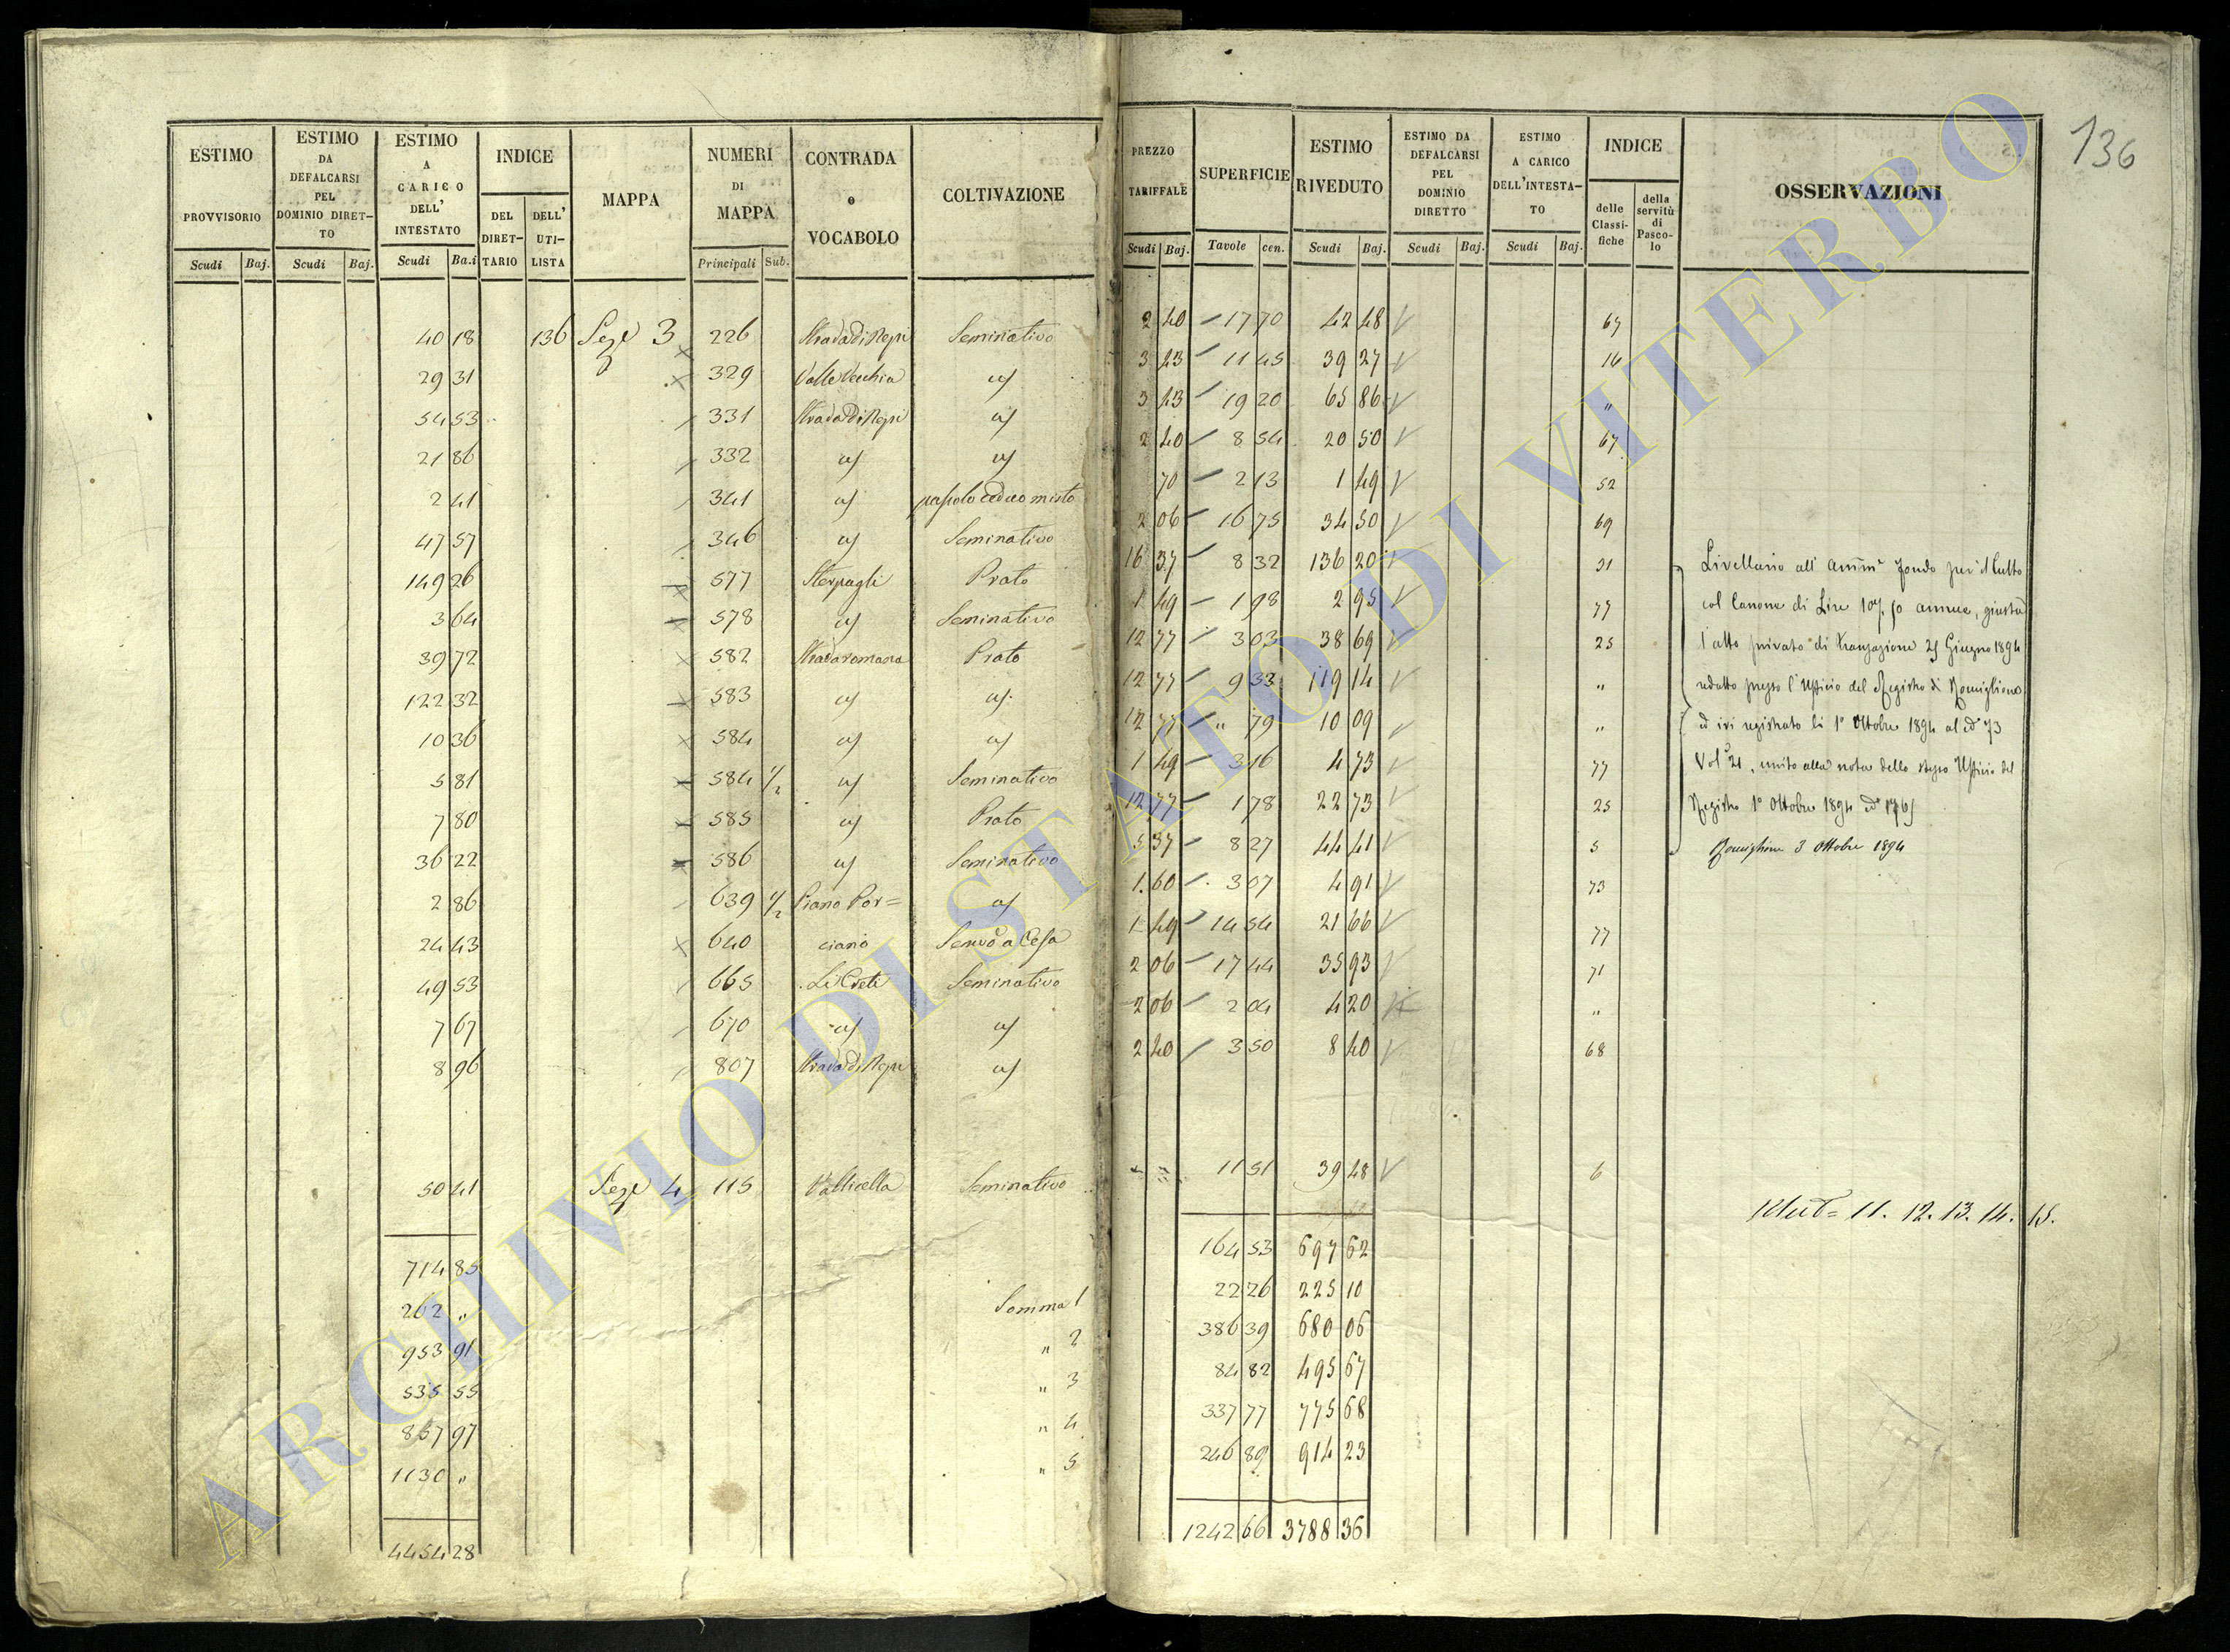 136
ESTIMO PROVVISORIO Scudi Baj.
ESTIMO DA DEFALCARSI PEL DOMINIO DIRETTO Scudi Baj.
ESTIMO A CARICO DELL' INTESTATO Scudi Ba.i
INDICE DEL DIRETTARIO DELL' UTILISTA
MAPPA
NUMERI DI MAPPA Principali Sub.
CONTRADA o VOCABOLO
COLTIVAZIONE
PREZZO TARIFFALE Scudi Baj.
SUPERFICIE Tavole cen.
ESTIMO RIVEDUTO Scudi Baj.
ESTIMO DA DEFALCARSI PEL DOMINIO DIRETTO Scudi Baj.
ESTIMO A CARICO DELL'INTESTATO Scudi Baj.
INDICE delle Classifiche della servitù di Pascolo
OSSERVAZIONI
40 18 136 Seze 3 226 Strada di Nepi Seminativo 2 40 17 70 42 48 67
29 31 329 Valle Vecchia 3 43 11 45 39 27 14
54 53 331 Strada di Nepi 3 43 19 20 65 86 "
21 86 332 2 40 8 54 20 50 67
2 41 341 pascolo ceduo misto 70 2 13 1 49 52
47 57 346 Seminativo 2 06 16 75 34 50 69
149 26 577 Sterpagli Prato 16 37 8 32 136 20 31
3 64 578 Seminativo 1 49 1 98 2 95 77
39 72 582 Strada romana Prato 12 77 3 03 38 69 25
122 32 583 12 77 9 33 119 14 "
10 36 584 12 77 " 79 10 09 "
5 81 584 1/2 Seminativo 1 49 3 16 4 73 77
7 80 585 Prato 12 77 1 78 22 73 25
36 22 586 Seminativo 5 37 8 27 44 41 5
2 86 639 1/2 Piano Por= 1 60 3 07 4 91 73
24 43 640 ciano 1 49 14 54 21 66 77
49 53 665 Li Creti Seminativo 2 06 17 44 35 93 71
7 67 670 2 06 2 04 4 20 "
8 96 807 Strada di Nepi 2 40 3 50 8 40 68
50 41 Seze 4 115 Vallicella Seminativo 11 51 39 48 6
714 85 164 53 697 62
262 " Somma 1 22 26 225 10
953 91 " 2 386 39 680 06
535 55 " 3 84 82 495 67
857 97 " 4 337 77 775 68
1130 " " 5 246 89 914 23
4454 28 1242 66 3788 36
Livellario all' Fondo per il Culto
col Canone di Lire annue, giusta
l'atto privato di transazione 25 Giugno 1894
redatto presso l'Ufficio del Registro di Ronciglione
ed ivi registrato li 1° Ottobre 1894 al N° 73
Vol° 21, unito alla nota dello stesso Ufficio del
Registro 1° Ottobre 1894
Ronciglione 3 Ottobre 1894
11. 12. 13. 14. 15.
ARCHIVIO DI STATO DI VITERBO